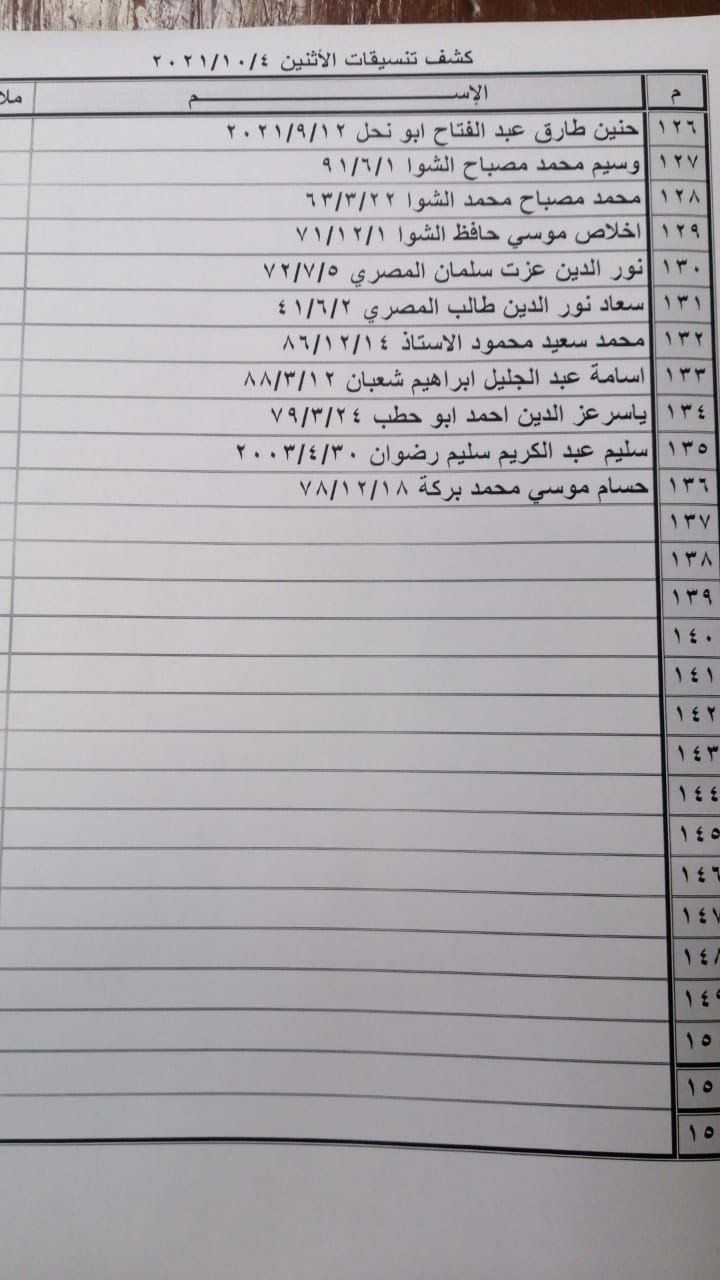 كشف تنسيقات الأثنين ٢٠٢١/١٠/٤
م الإســــــــم ملا
١٢٦ حنين طارق عبد الفتاح ابو نحل ٢٠٢١/٩/١٢
١٢٧ وسيم محمد مصباح الشوا ٩١/٦/١
١٢٨ محمد مصباح محمد الشوا ٦٣/٣/٢٢
١٢٩ اخلاص موسي حافظ الشوا ٧١/١٢/١
١٣٠ نور الدين عزت سلمان المصري ٧٢/٧/٥
١٣١ سعاد نور الدين طالب المصري ٤١/٦/٢
١٣٢ محمد سعيد محمود الاستاذ ٨٦/١٢/١٤
١٣٣ اسامة عبد الجليل ابراهيم شعبان ٨٨/٣/١٢
١٣٤ ياسرعز الدين احمد ابو حطب ٧٩/٣/٢٤
١٣٥ سليم عبد الكريم سليم رضوان ٢٠٠٣/٤/٣٠
١٣٦ حسام موسي محمد بركة ٧٨/١٢/١٨
١٣٧
١٣٨
١٣٩
١٤٠
١٤١
١٤٢
١٤٣
١٤٤
١٤٥
١٤٦
١٤٧
١٤٨
١٤٩
١٥
١٥
١٥